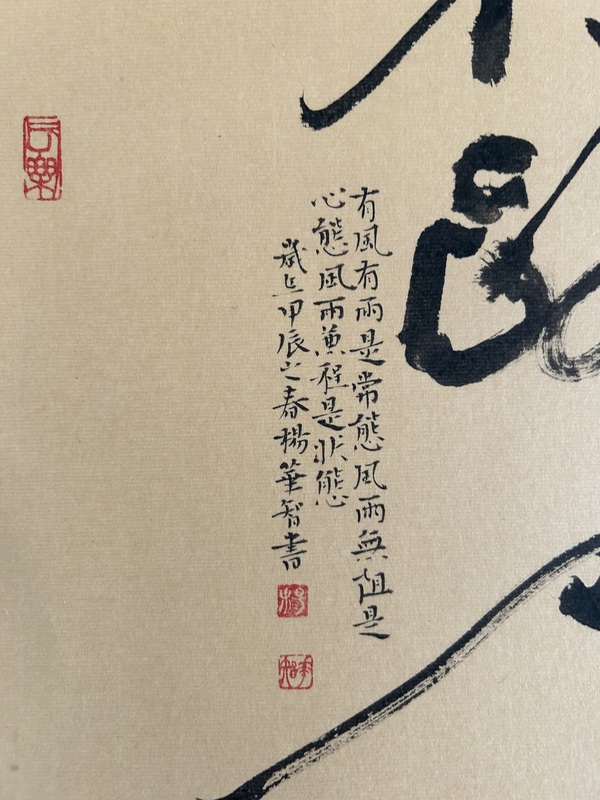 有風有雨是常態風雨無阻是
心態風雨兼程是狀態
歲在甲辰之春楊華智書
楊